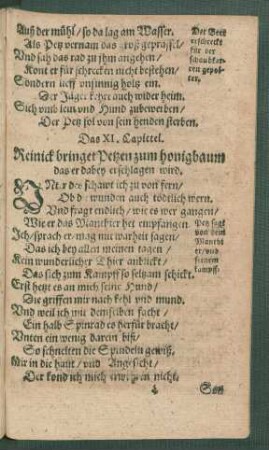 Auß der mühl / so da lag am Wasser.
Als Petz vernam das groß geprassel /
Und sah das rad zu ihm angehen /
Kont er für schrecken nicht bestehen /
Sondern lieff unsinnig holtz ein.
Der Jäger kehrt auch wider heim.
Sich umb sein Hund zubewerben /
Der Petz sol von sein henden sterben.
Der Beer
erschreckt
für der
Das XI. Capittel.
Reinick bringet Petzen zum honigbaum
das er dabey erschlagen wird.
schawt ich zu von fern /
Ob wunden auch tödtlich wern.
Und fragt endlich / wie es wer gangen /
Wie er das Manthier het empfangen
Ich / sprach er / mag mit warheit sagen /
Das ich bey allen meinen tagen /
Kein wunderlicher Thier anblickt /
Das sich zum Kampff so seltzam schickt.
Petz sagt
von dem
Erst hetzt es an mich seine Hund /
Die griffen mir nach kehl und mund.
Und weil ich mit demselben facht /
Ein halb Spinrad es herfür bracht /
Unten ein wenig daran bist /
So schnelten die Spindeln gewiß,
Mir in die haut / und Angesicht /
Der kond ich mich erwehren nicht.